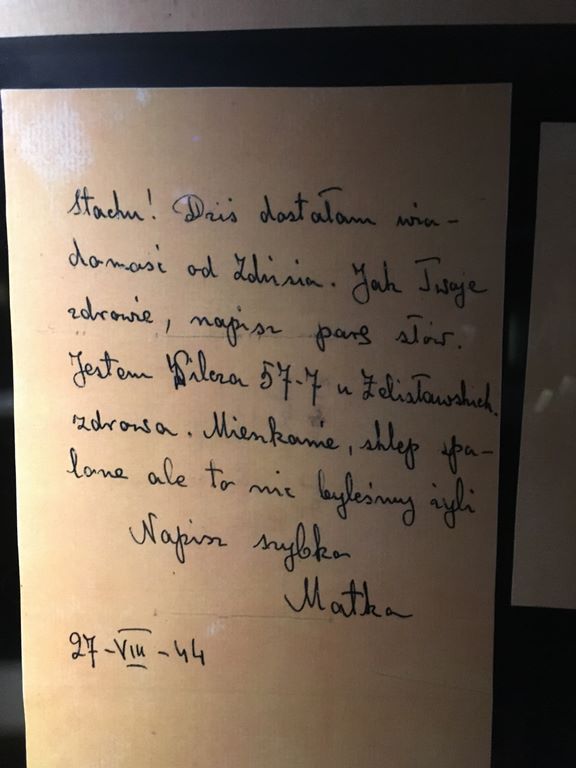 Stachu! Dziś dostałam wia-
domość od Zdzisia. Jak Twoje
zdrowie, napisz parę słów.
Jestem Wilcza 57-7 u Zelisławskich.
zdrowa. Mieszkanie, sklep spa-
lone ale to nic byleśmy żyli
Napisz szybko
Matka
27-VIII-44